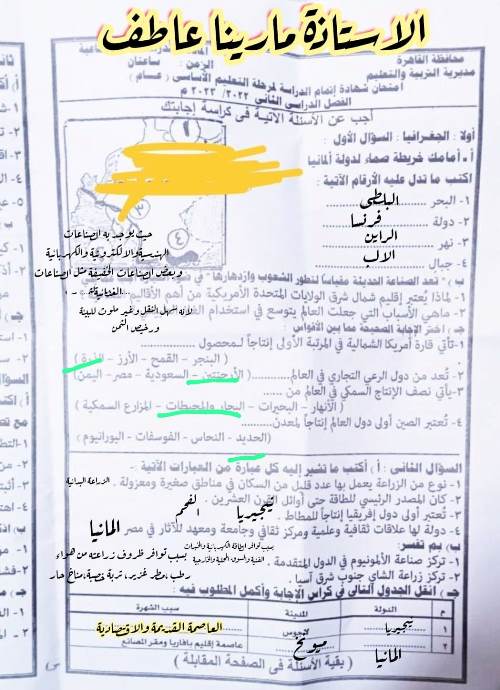 الاستاذة مارينا عاطف
محافظة القاهرة
مديرية التربية والتعليم
الزمن: ساعتان
امتحان شهادة إتمام الدراسة لمرحلة التعليم الأساسى ( عـــام )
الفصل الدراسى الثانى ٢٠٢٢/ ٢٠٢٣ م
أجب عن الأسئلة الآتية فى كراسة إجابتك
أولا : الجغرافيا : السؤال الأول :
أ - أمامك خريطة صماء لدولة ألمانيا
اكتب ما تدل عليه الأرقام الآتية :
١- البحر البلطى
٢- دولة فرنسا
٣- نهر الراين
٤- جبال الالب
حيث يوجد به الصناعات
الهندسية والالكترونية والكهربائية
وبعض الصناعات الخفيفة مثل الصناعات
الغذائية
ب - " تعد الصناعة الحديثة مقياسا لتطور الشعوب وازدهارها "
١- لماذا يُعتبر إقليم شمال شرق الولايات المتحدة الأمريكية من أهم الأقاليم
٢- ماهي الأسباب التي جعلت العالم يتوسع في استخدام الغاز
لانه سهل النقل وغير ملوث للبيئة
ورخيص الثمن
جـ - اختر الإجابة الصحيحة مما بين الأقواس :
١-تأتي قارة أمريكا الشمالية في المرتبة الأولى إنتاجاً لمحصول
( البنجر - القمح - الأرز - الذرة )
٢- تُعد من دول الرعي التجاري في العالم..... ( الأرجنتين - السعودية - مصر - اليمن)
٣-يأتي نصف الإنتاج السمكي في العالم من ......
( الأنهار - البحيرات - البحار والمحيطات - المزارع السمكية )
٤- تُعتبر الصين أولى دول العالم إنتاجاً لمعدن.....
(الحديد - النحاس - الفوسفات - اليورانيوم )
السؤال الثانى : أ ) أكتب ما تشير إليه كل عبارة من العبارات الآتية :-
١- نوع من الزراعة يعمل بها عدد قليل من السكان في مناطق صغيرة ومعزولة. الزراعة البدائية
٢- كان المصدر الرئيسي للطاقة حتى أوائل القرن العشرين . الفحم
٣- تُعتبر أولى دول إفريقيا إنتاجاً للمطاط . نيجيريا
٤- دولة لها علاقات ثقافية وعلمية ومركز ثقافي وجامعة ومعهد للآثار في مصر المانيا
ب) بم تفسر:
١- تركز صناعة الألمونيوم في الدول المتقدمة .
بسبب توافر الطاقة الكهربائية والخبرات
الفنية والسوق المحلية والخارجية
٢- تركز زراعة الشاي جنوب شرق آسيا .
بسبب توافر ظروف زراعته من هواء
رطب،مطر غزير، تربة خصبة،مناخ حار
جـ) انقل الجدول التالي في كراس الإجابة وأكمل المطلوب فيه :
م الدولة المدينة سبب الشهرة
١ نيجيريا لاجوس العاصمة القديمة والاقتصادية
٢ المانيا ميونخ عاصمة إقليم بافاريا ومقر المصانع
( بقية الأسئلة فى الصفحة المقابلة )